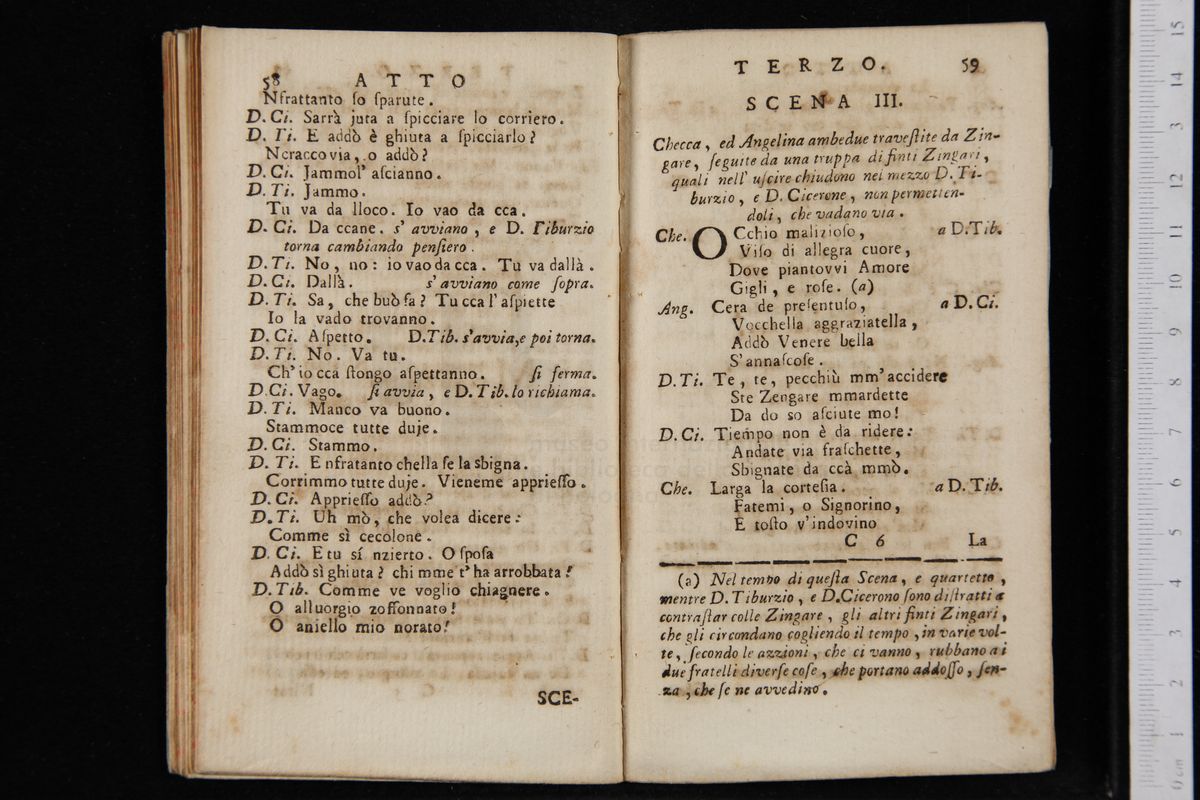 58 ATTO
Nfrattanto ſo ſparute.
D. Ci. Sarrà juta a ſpicciare lo corriero.
D. Ti. E addò è ghiuta a ſpicciarlo?
Ncraccovia, o addò?
D. Ci. Jammol' aſcianno.
D. Ti. Jammo.
Tu va da lloco. Io vao da cca.
D. Ci. Da ccane. s' avviano, e D. Tiburzio
torna cambiando penſiero.
D. Ti. No, no: io vao da cca. Tu va dallà.
D. Ci. Dallà. s' avviano come ſopra.
D. Ti. Sa, che buò fa? Tu cca l' aſpiette
Io la vado trovanno.
D. Ci. Aſpetto. D. Tib. s'avvia, e poi torna.
D. Ti. No. Va tu.
Ch' io cca ſtongo aſpettanno. ſi ferma.
D. Ci. Vago. ſi avvia, e D. Tib. lo richiama.
D. Ti. Manco va buono.
Stammoce tutte duje.
D. Ci. Stammo.
D. Ti. E nfratanto chella ſe la sbigna.
Corrimmo tutte duje. Vieneme apprieſſo.
D. Ci. Apprieſſo addò?
D. Ti. Uh mò, che volea dicere:
Comme sì cecolone.
D. Ci. E tu sí nzierto. O ſpoſa
Addò sì ghiuta? chi mme t' ha arrobbata!
D. Tib. Comme ve voglio chiagnere.
O alluorgio zoffonnato!
O aniello mio norato!
SCE-
TERZO. 59
SCENA III.
Checca, ed Angelina ambedue traveſtite da Zin-
gare, ſeguite da una truppa di finti Zingari,
quali nell' uſcire chiudono nel mezzo D. Ti-
burzio, e D. Cicerone, non permetten-
doli, che vadano via.
Che. OCchio malizioſo, a D. Tib.
Viſo di allegra cuore,
Dove piantovvi Amore
Gigli, e roſe. (a)
Ang. Cera de preſentuſo, a D. Ci.
Vocchella aggraziatella,
Addò Venere bella
S' annaſcoſe.
D. Ti. Te, te, pecchiù mm' accidere
Ste Zengare mmardette
Da do so aſciute mo!
D. Ci. Tiempo non è da ridere:
Andate via fraſchette,
Sbignate da ccà mmò.
Che. Larga la corteſia. a D. Tib.
Fatemi, o Signorino,
E toſto v' indovino
C 6 La
(a) Nel tempo di queſta Scena, e quartetto,
mentre D. Tiburzio, e D. Cicerono ſono diſtratti a
contraſtar colle Zingare, gli altri finti Zingari,
che gli circondano cogliendo il tempo, in varie vol-
te, ſecondo le azzioni, che ci vanno, rubbano a i
due fratelli diverſe coſe, che portano addoſſo, ſen-
za, che ſe ne avvedino.